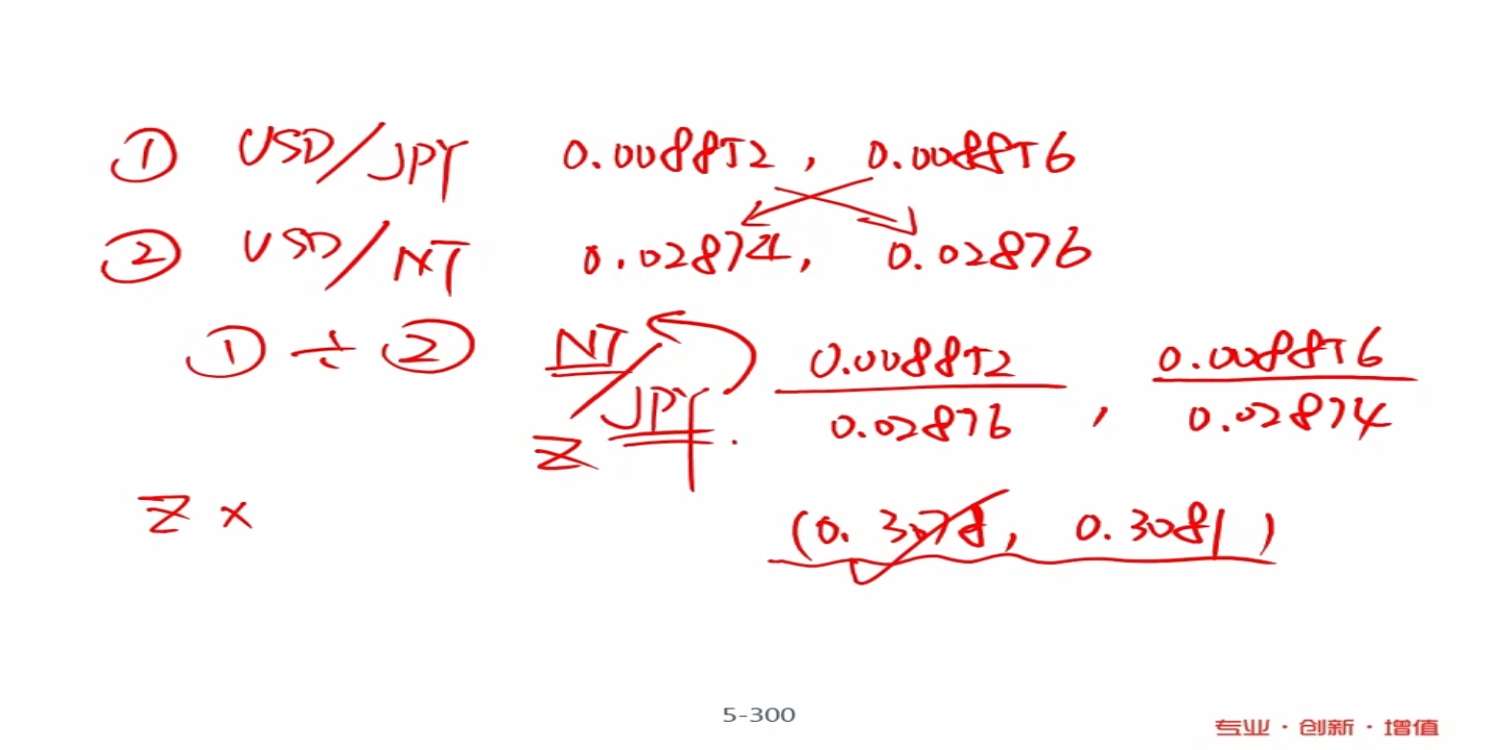 ① USD/JPY 0.008852, 0.008856
② USD/NT 0.02874, 0.02876
① ÷ ② NT/JPY. 0.008852/0.02876, 0.008856/0.02874
Z
Z × (0.3078, 0.3081)
5-300
专业·创新·增值